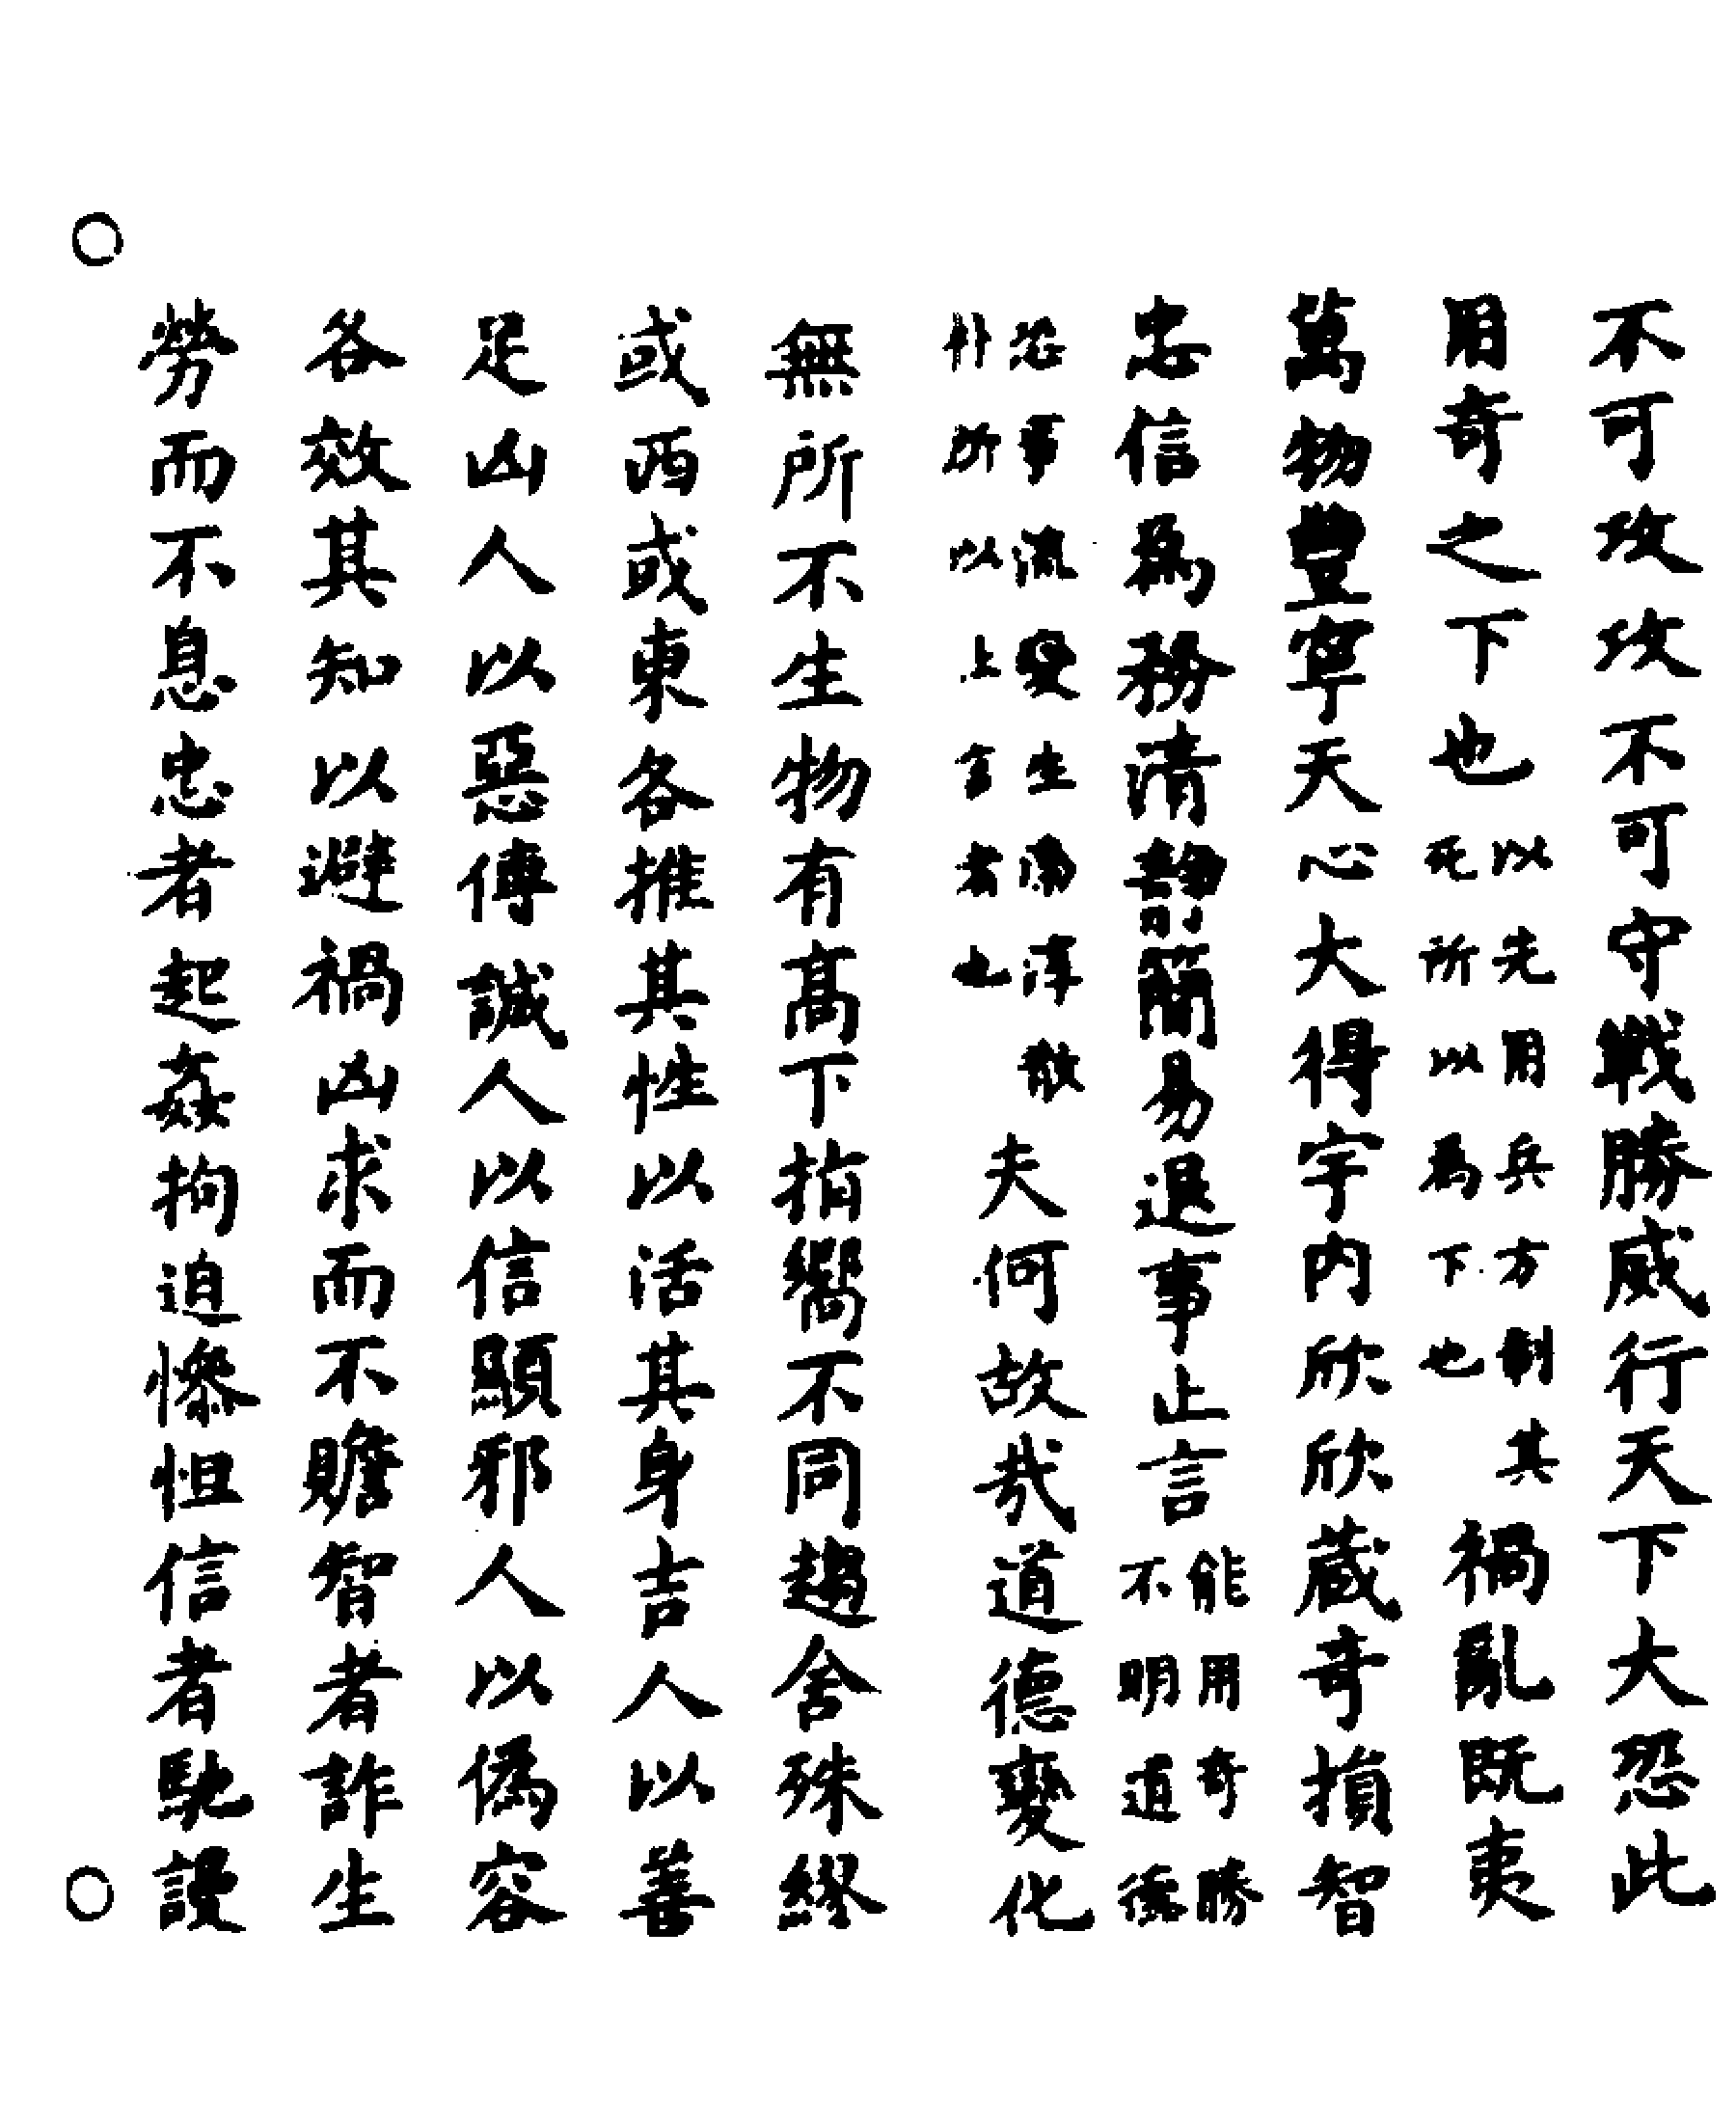 不可攻攻不可守戰勝威行天下大怨此
用奇之下也以先用兵方制其死所以為下也禍亂既夷
萬物豐寧天心大得宇内欣欣蔵奇損智
忠信為務清靜簡易退事止言能用奇勝不明道德
恐事流變生淳散朴所以上言者也夫何故哉道德變化
無所不生物有髙下指嚮不同趨舍殊繆
或西或東各推其性以活其身吉人以善
足凶人以惡傳誠人以信顯邪人以偽容
各效其知以避禍凶求而不贍智者詐生
勞而不息忠者起姦拘迫慘怛信者馳謾